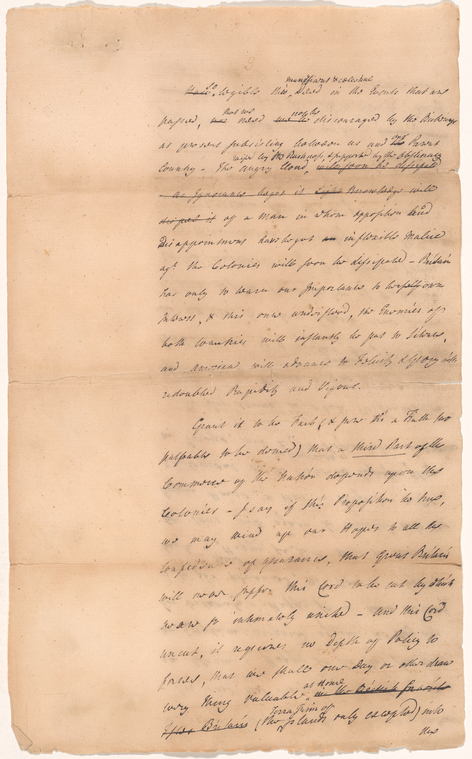 munificent & celestial
legible this Deed in the Events that are
that we
people
passed, need discouraged by the
at present subsisting between us and The Parent
by the Rashness, & by the obstinacy
Country - The angry Cloud, will soon be dissipated
as Ignorance begat it Knowledge will
of a Man in whom Opposition and
Disappointment have begot an inflexible Malice
agt the Colonies will soon be dissipated - Britain
has only to learn our Importance to her own
Interest, & this once understood, the Enemies of
both Countries will instantly be put to Silence,
and America will advance to Felicity & Glory with
redoubled Rapidity and Vigour.
Grant it to be Fact (& sure tis a Truth too
palpable to be denied) that a third Part of the
Commerce of the Nation depends upon the
Colonies - I say if this Proposition be true,
we may wind up our Hopes to all the
confidence of assurance, that Great Britain
will never suffer this Cord to be cut by which
we are so intimately united - and this Cord
uncut, it requires no Depth of Policy to
foresee, that we shall one Day or other draw
at Home
every Thing valuable in the British
Terra Firma of
Britain (the Islands only excepted) into
our